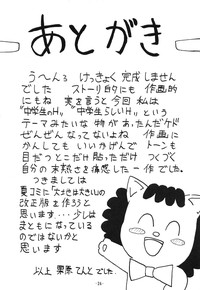 あとがき
うへん3 けっきょく完成しません
でした ストーリ的にも 作画的
にもね 実を言うと今回 私は
"中学生のH" "中学生らしいH" という
テーマみたいな物があったんだケド
ぜんぜんなってないよね 作画に
かんしても いいかげんで トーンも
目だつとこだけ貼っただけ つくづく
自分の末熟さを痛感した一作でした。
つきましては
夏コミに
改正版を作ろうと
思います・・・少しは
まともになっている
のではないかと
思います
以上 でした。